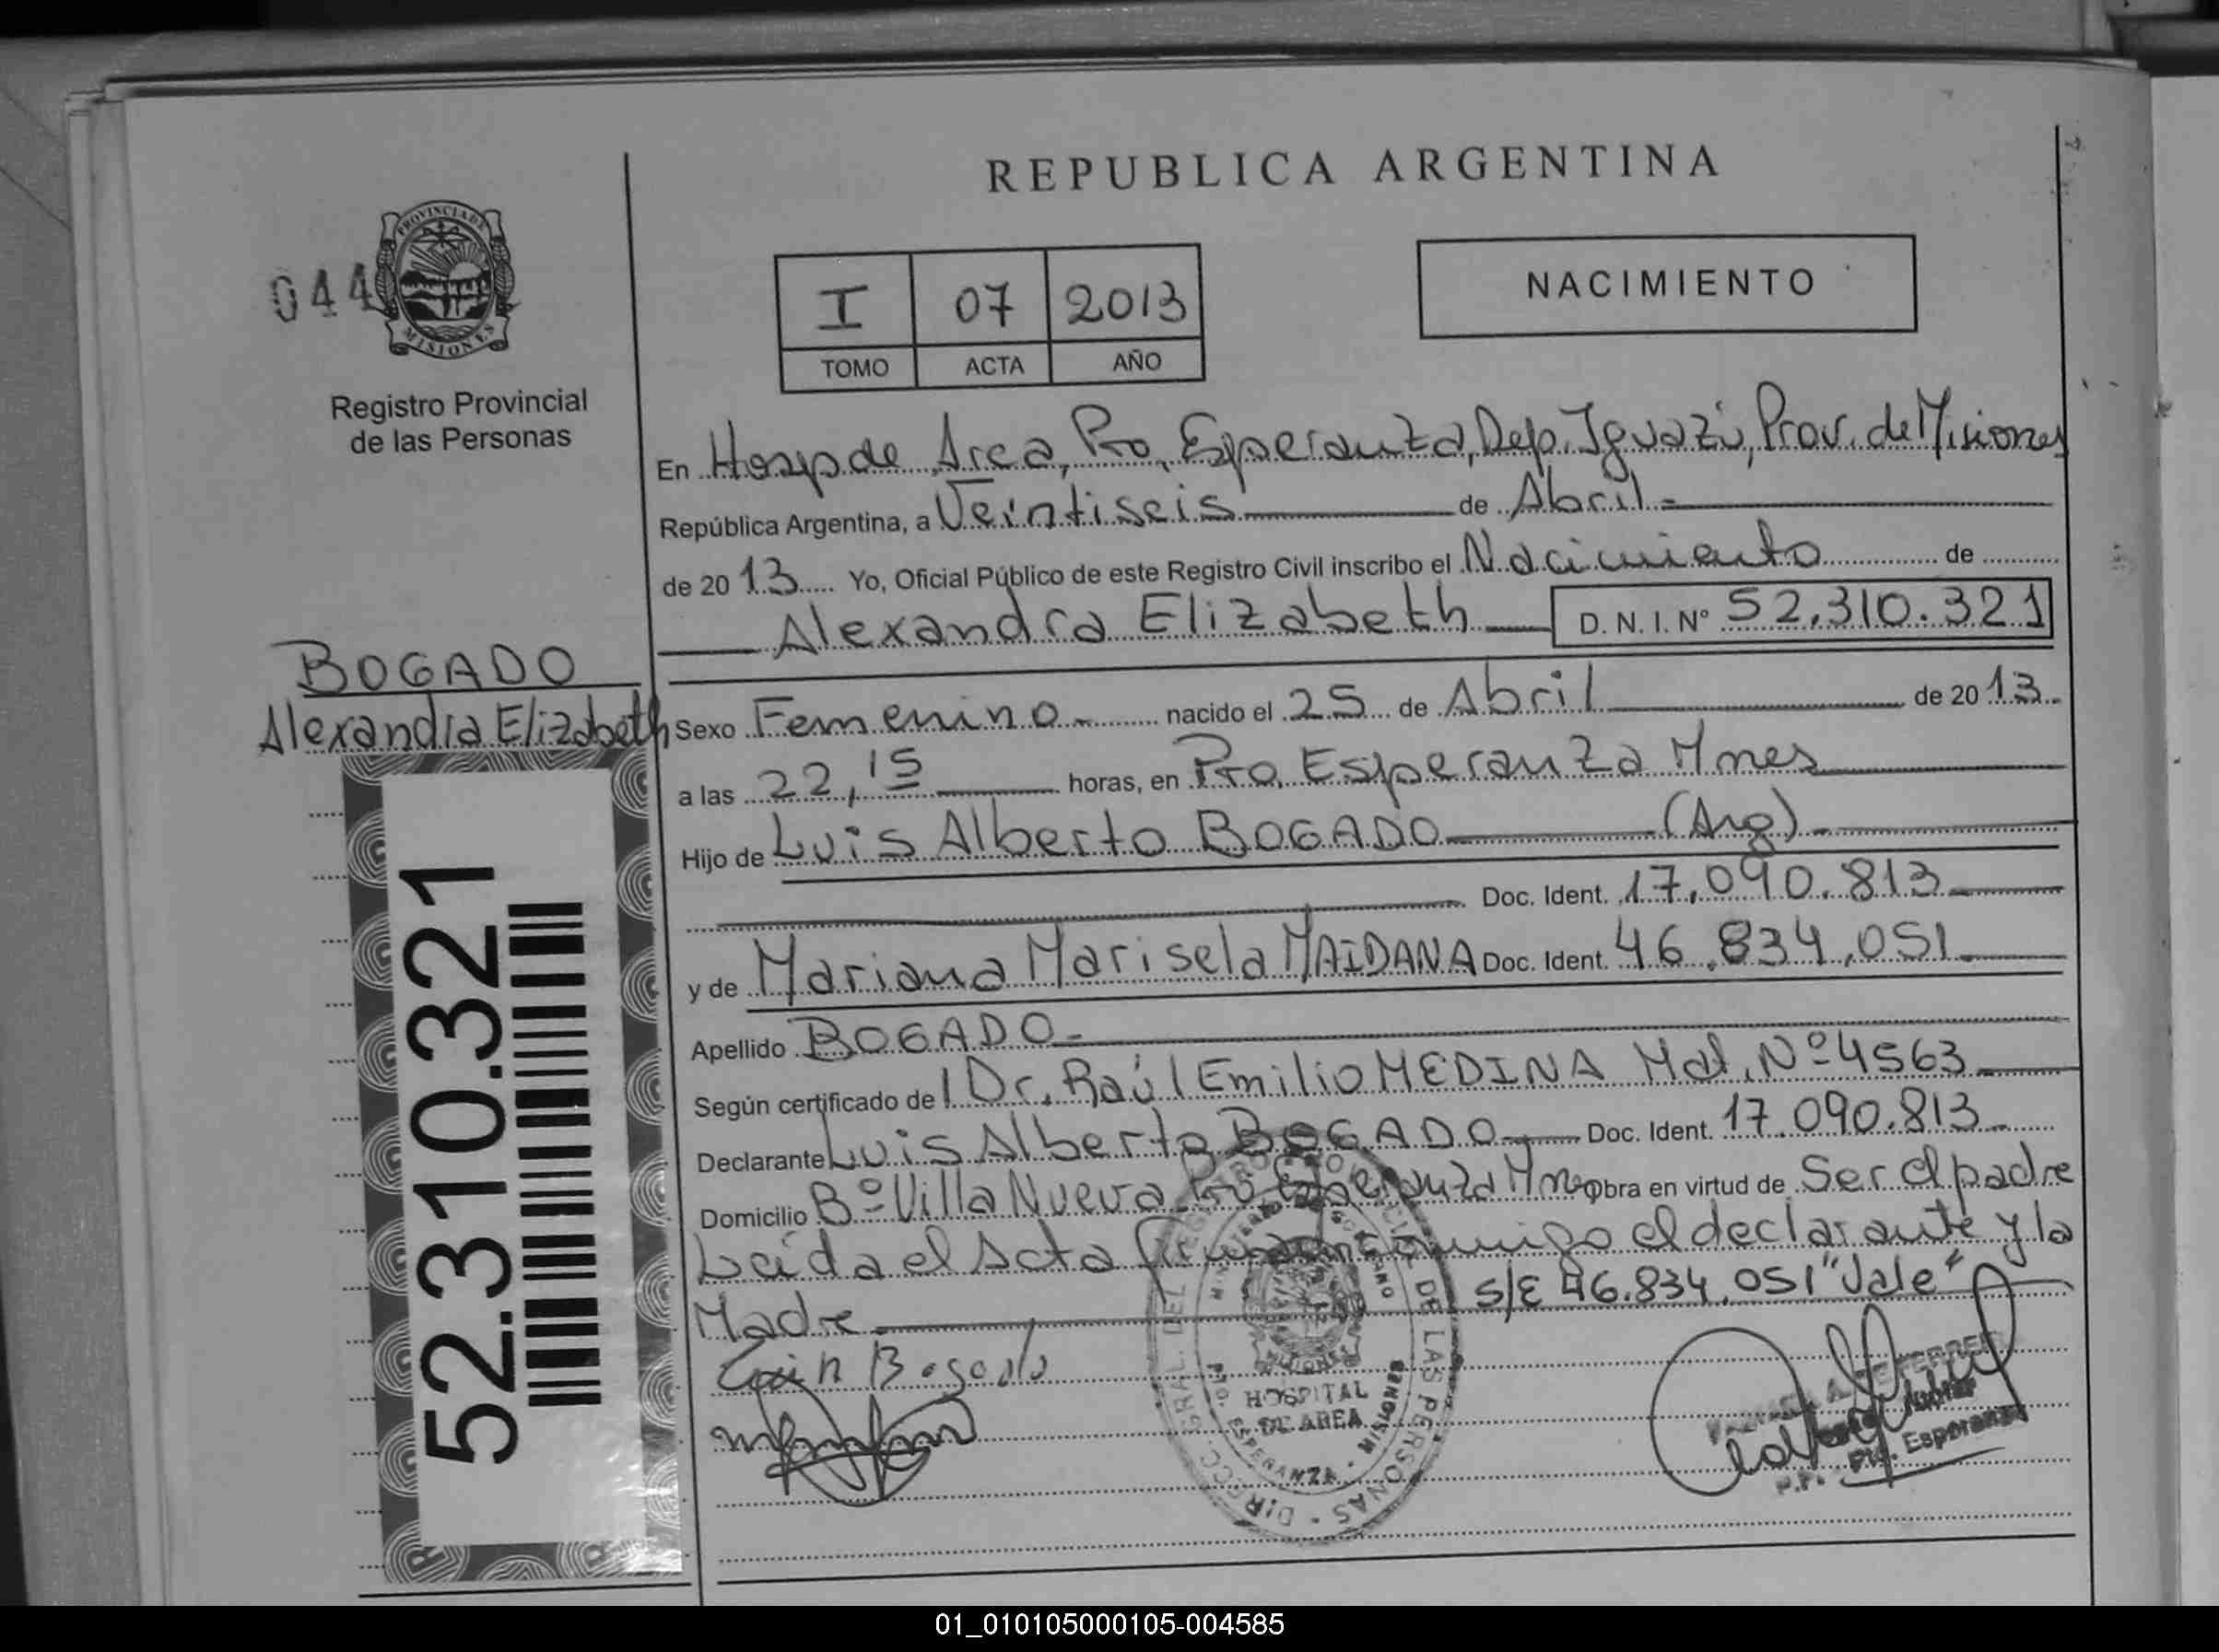 REPUBLICA ARGENTINA
044
PROVINCIA DE
MISIONES
Registro Provincial
de las Personas
I 07 2013
TOMO ACTA AÑO
NACIMIENTO
En Hosp de Area, Pto. Esperanza, Dep. Iguazú, Prov. de Misiones
República Argentina, a Veintiseis de Abril
de 20 13 Yo, Oficial Público de este Registro Civil inscribo el Nacimiento de
Alexandra Elizabeth D. N. I. N° 52.310.321
BOGADO
Alexandra Elizabeth
Sexo Femenino nacido el 25 de Abril de 20 13
a las 22,15 horas, en Pto. Esperanza Mnes
Hijo de Luis Alberto BOGADO (Arg)
Doc. Ident. 17.090.813
y de Mariana Marisela MAIDANA Doc. Ident. 46.834.051
Apellido BOGADO
Según certificado del Dr. Raúl Emilio MEDINA Mat. Nº 4563
Declarante Luis Alberto BOGADO Doc. Ident. 17.090.813
Domicilio Bº Villa Nueva Pto. Esperanza Mnes obra en virtud de Ser el padre
Leída el Acta firman conmigo el declarante y la
Madre s/E 46.834.051 "Vale"
52.310.321
HOSPITAL
DE AREA
PTO. ESPERANZA - MISIONES
DE LAS PERSONAS
Pto. Esperanza
01_010105000105-004585